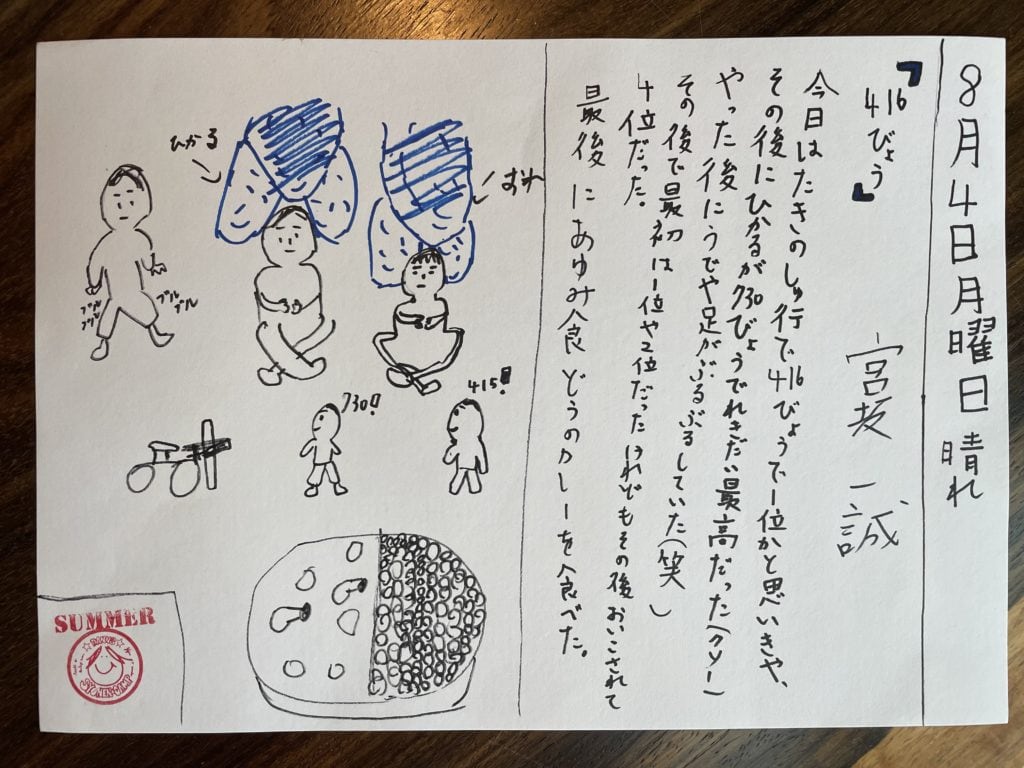 8月4日月曜日 晴れ
『416びょう』
宮坂 一誠
今日はたきのしゅ行で416びょうで一位かと思いきや、
その後にひかるが730びょうでれきだい最高だった(クソー)
やった後にうでや足がぶるぶるしていた(笑)
その後で最初は一位や2位だったけれどもその後おいこされて
4位だった。
最後にあゆみ食どうのカレーを食べた。
ひかる
ブルブル
ブルブル
730!
415!
SUMMER